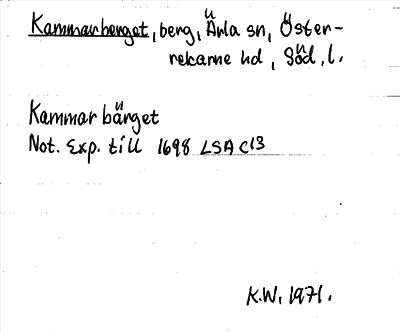 Kammarberget, berg, Ärla sn, Öster-
rekarne hd, Söd. l.
Kammar bärget
Not. Exp. till 1698 LSA C13
K.W. 1971.